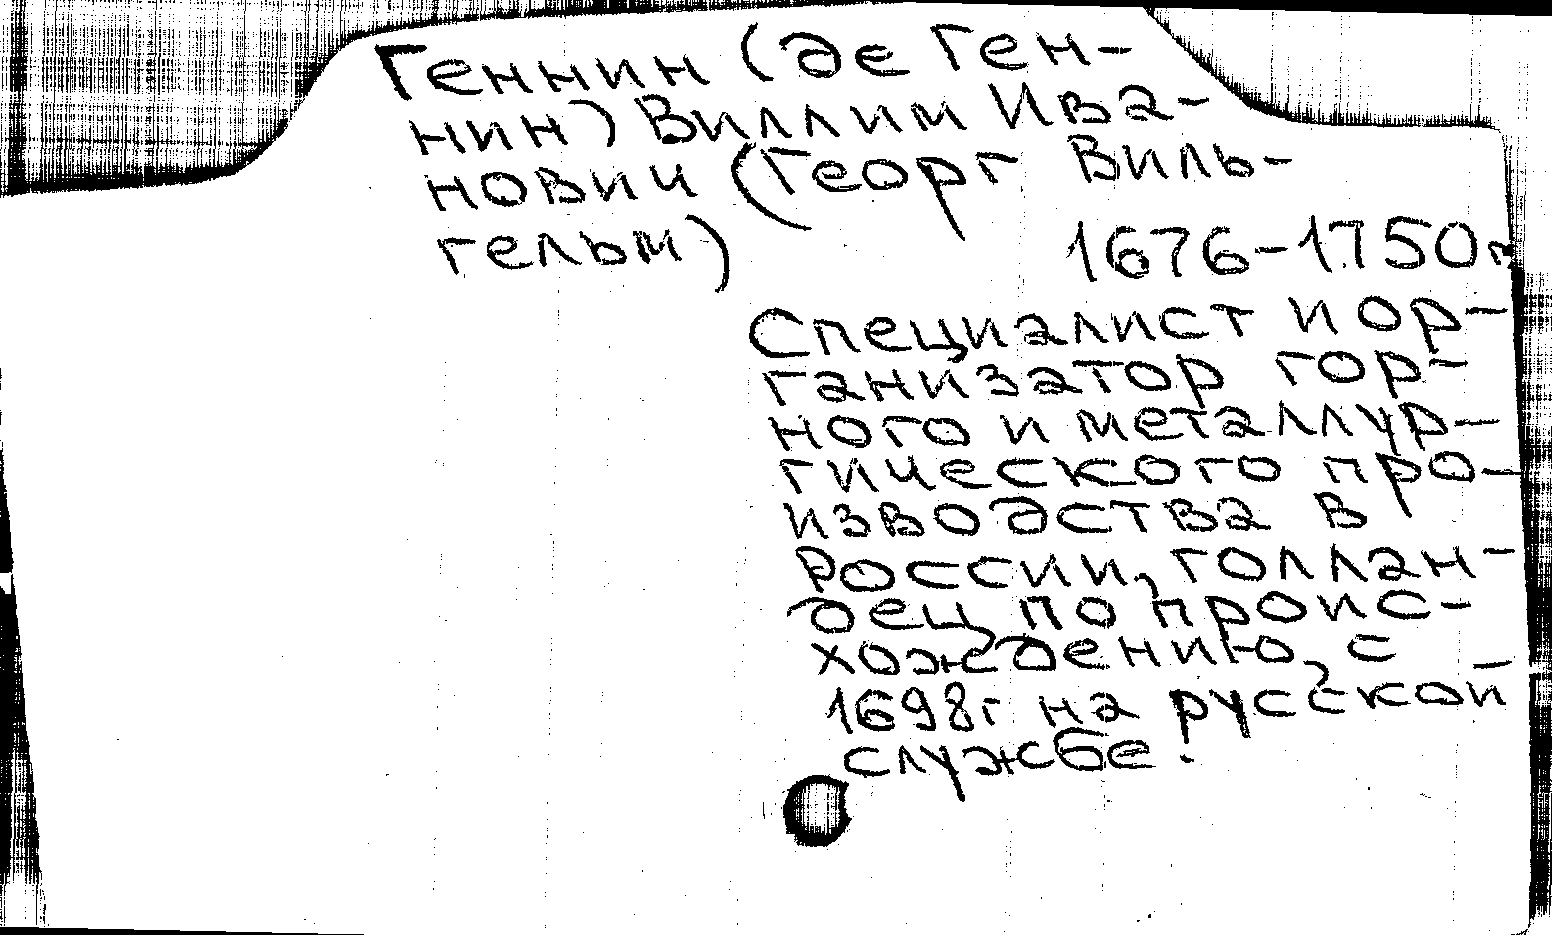 Геннин (де Ген-
нин) Виллим Ива-
нович (Георг Виль-
гельм)
1676-1750г
Специалист и ор-
ганизатор гор-
ного и металлур-
гического про-
изводства в
России, голлан-
дец по проис-
хождению, с
1698г на русской
службе.